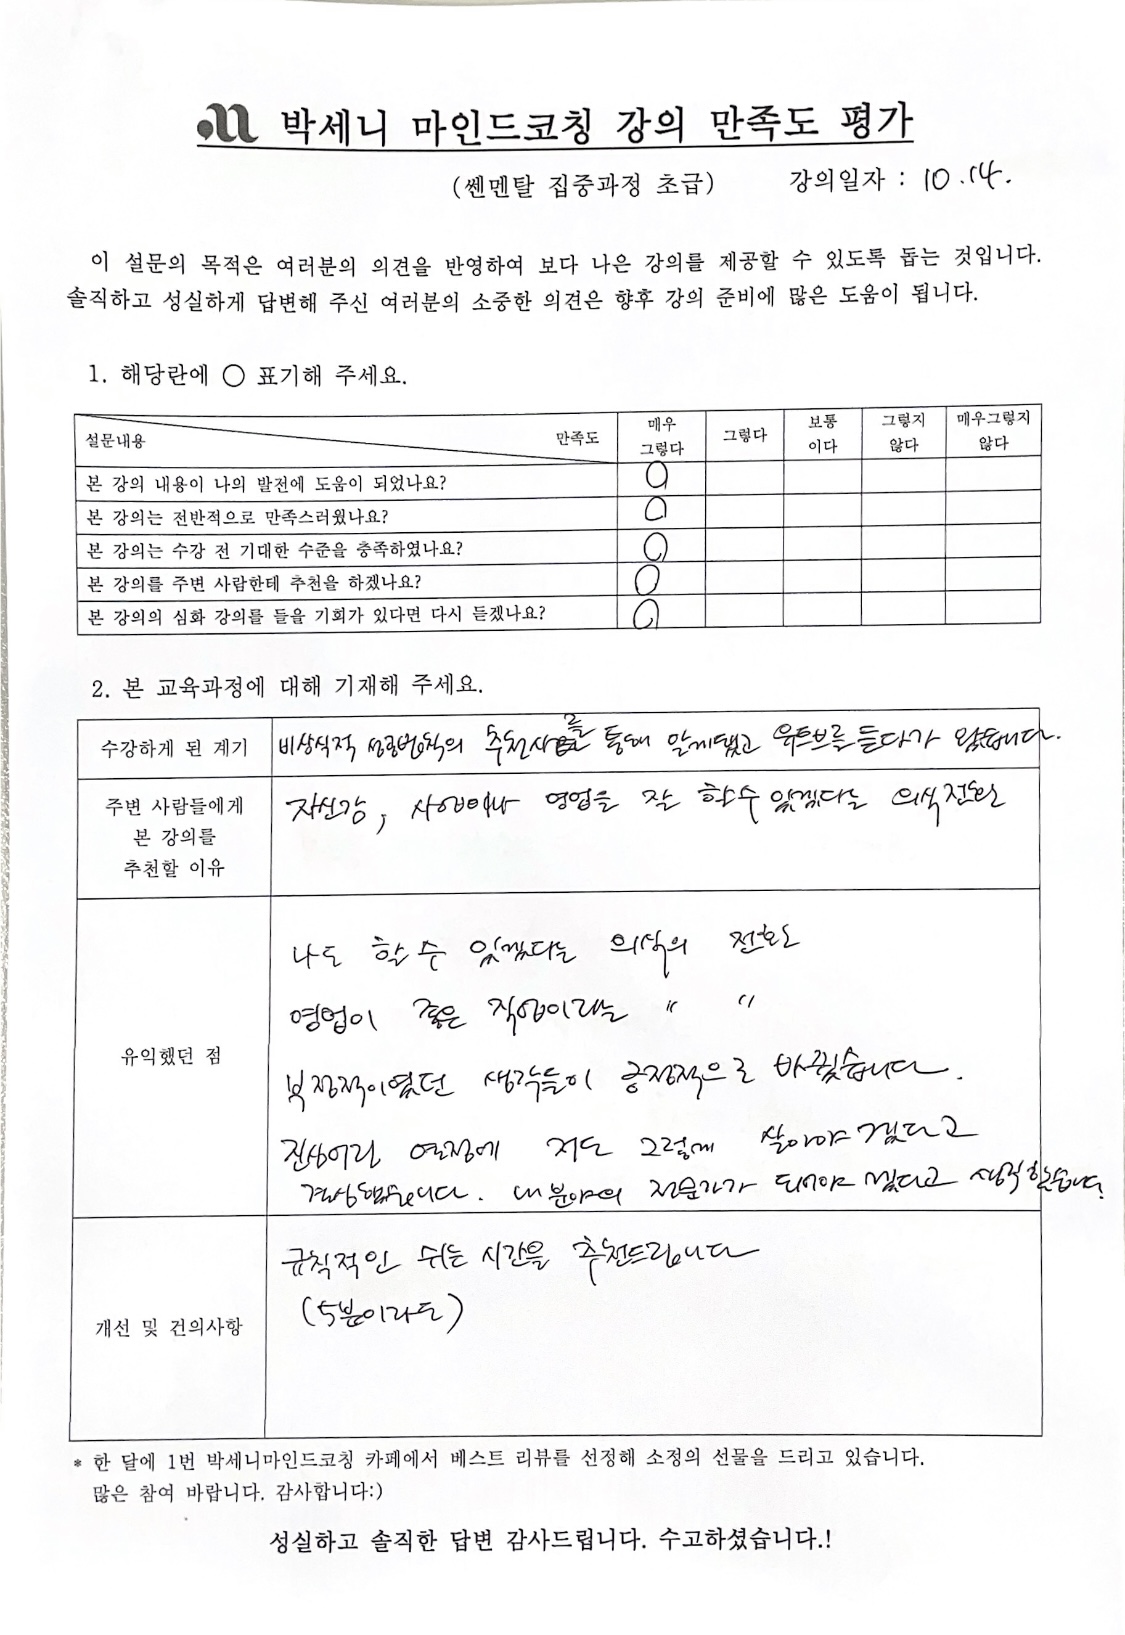 박세니 마인드코칭 강의 만족도 평가
(쎈멘탈 집중과정 초급) 강의일자 : 10.14.
이 설문의 목적은 여러분의 의견을 반영하여 보다 나은 강의를 제공할 수 있도록 돕는 것입니다.
솔직하고 성실하게 답변해 주신 여러분의 소중한 의견은 향후 강의 준비에 많은 도움이 됩니다.
1. 해당란에 ○ 표기해 주세요.
설문내용 만족도 매우 그렇다 그렇다 보통 이다 그렇지 않다 매우그렇지 않다
본 강의 내용이 나의 발전에 도움이 되었나요? ○
본 강의는 전반적으로 만족스러웠나요? ○
본 강의는 수강 전 기대한 수준을 충족하였나요? ○
본 강의를 주변 사람한테 추천을 하겠나요? ○
본 강의의 심화 강의를 들을 기회가 있다면 다시 듣겠나요? ○
2. 본 교육과정에 대해 기재해 주세요.
수강하게 된 계기 비상식적 성공법칙의 추천사를 통해 알게됐고 유튜브를 듣다가 왔습니다.
주변 사람들에게
본 강의를
추천할 이유
자신감, 사업이나 영업을 잘 할수 있겠다는 의식전환
유익했던 점
나도 할 수 있겠다는 의식의 전환
영업이 좋은 직업이라는 〃 〃
부정적이였던 생각들이 긍정적으로 바뀠습니다.
진상어린 열정에 저도 그렇게 살아야 겠다고
결심했습니다. 내 분야의 전문가가 되어야 겠다고 생각했습니다.
개선 및 건의사항
규칙적인 쉬는 시간을 추천드립니다
(5분이라도)
* 한 달에 1번 박세니마인드코칭 카페에서 베스트 리뷰를 선정해 소정의 선물을 드리고 있습니다.
많은 참여 바랍니다. 감사합니다:)
성실하고 솔직한 답변 감사드립니다. 수고하셨습니다.!